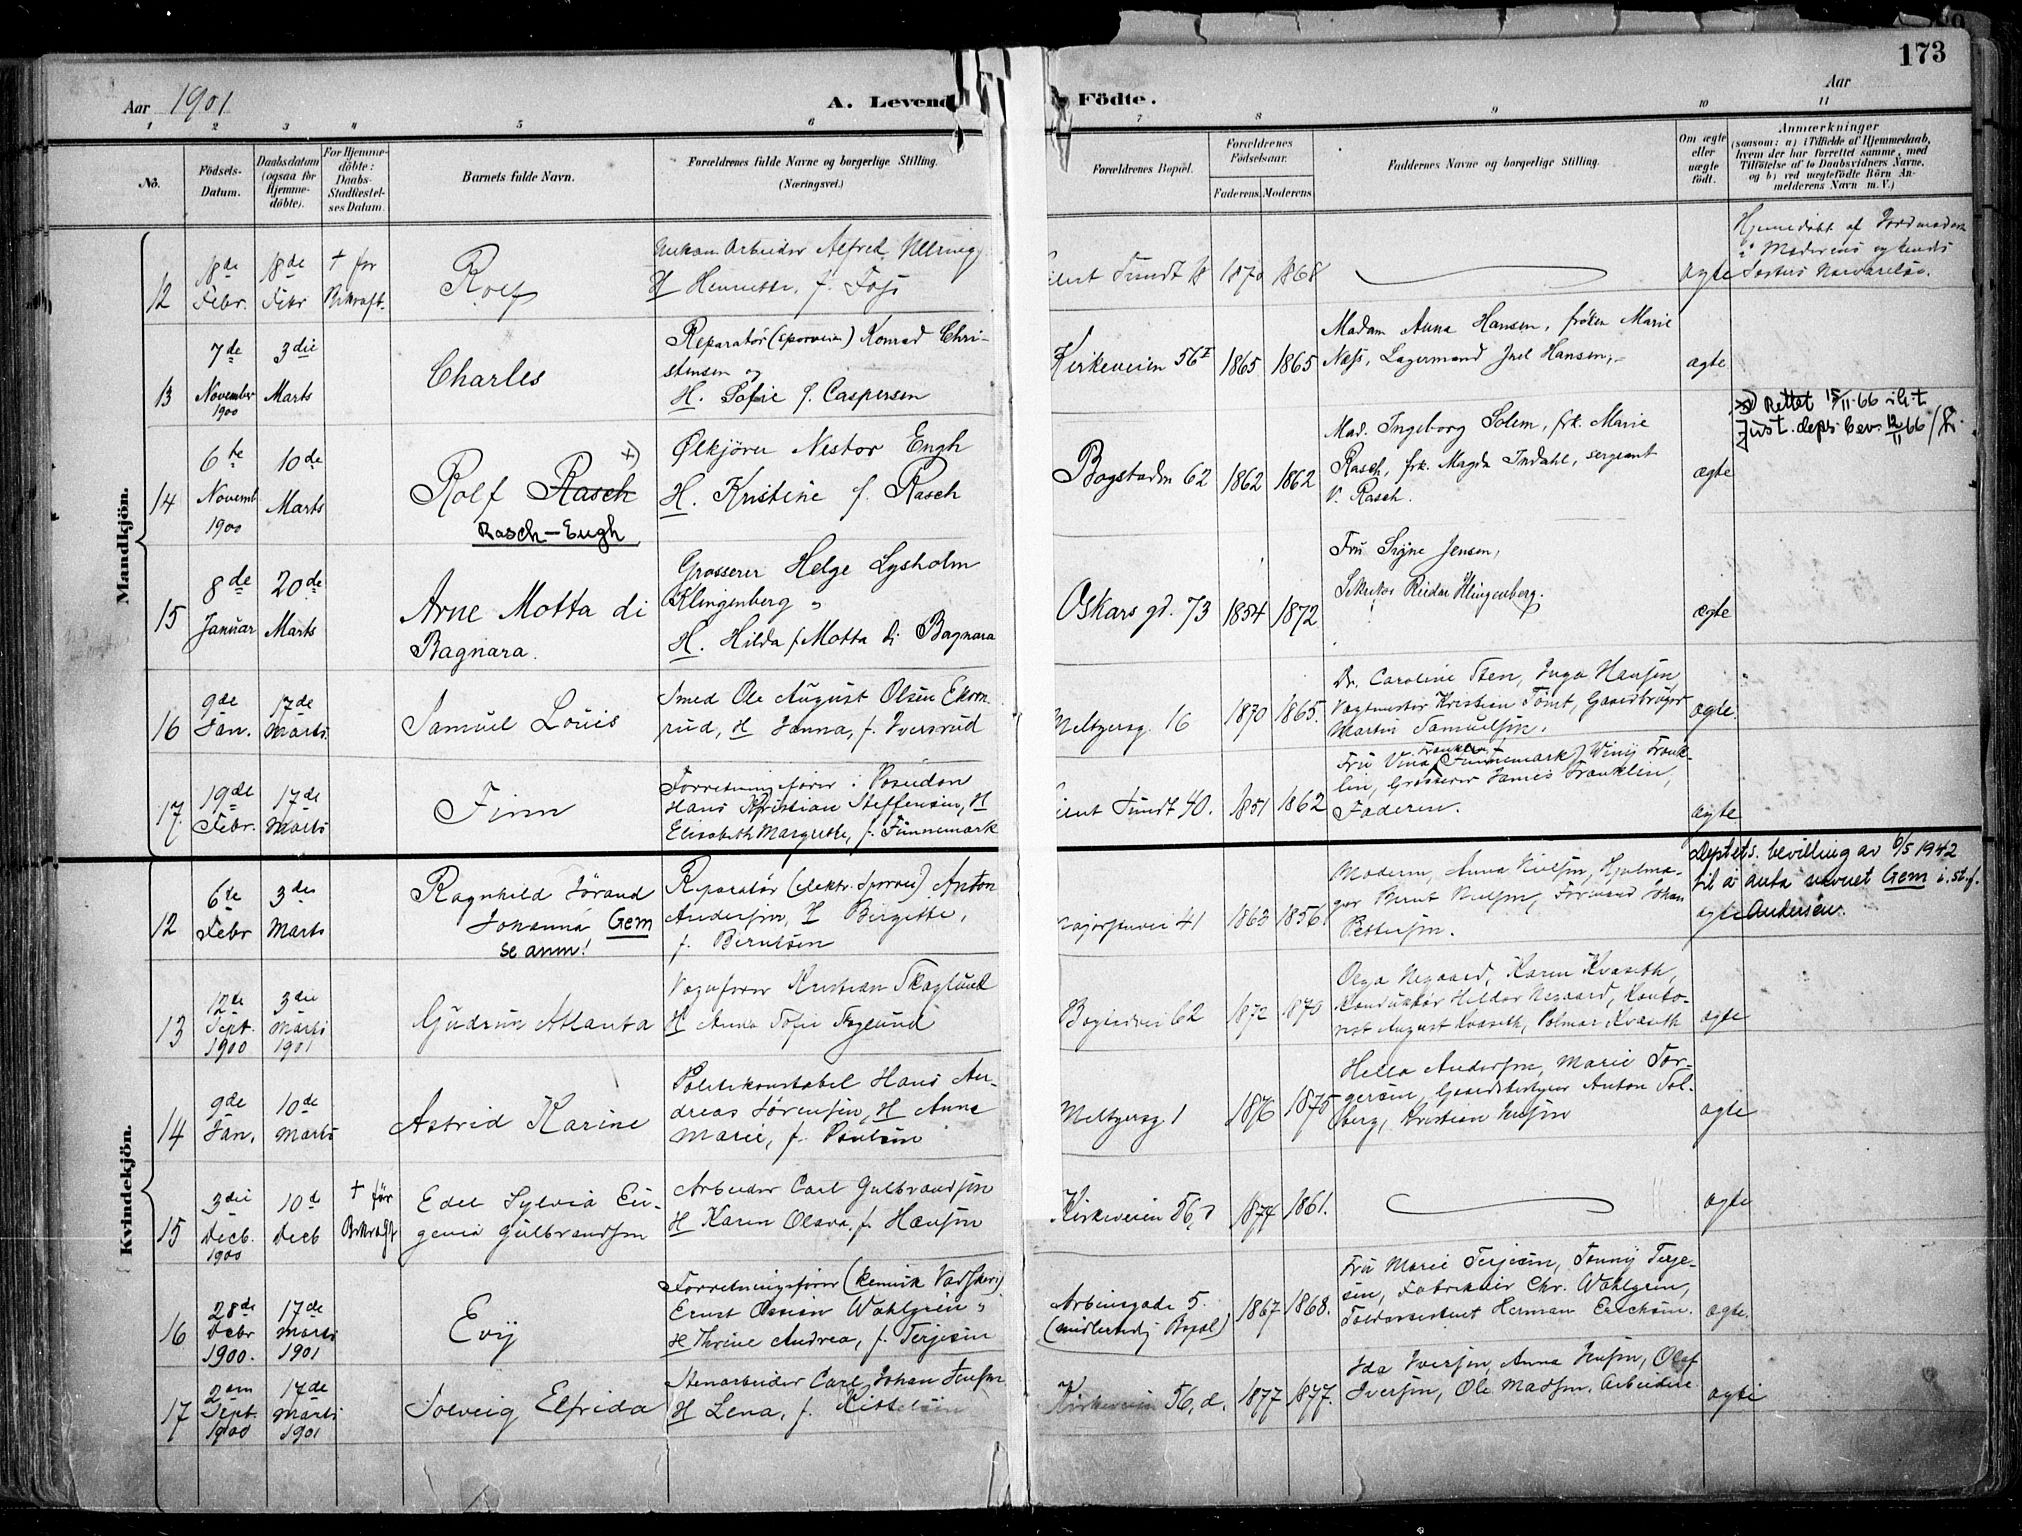 173
Aar 1901
A. Levende Födte.
Aar
1 2 3 4 5 6 7 8 9 10 11
No.
Födsels-
Datum.
Daabsdatum
(ogsaa for
Hjemme-
döbte).
For Hjemme-
döbte:
Daabs-
Stadfæstel-
ses Datum.
Barnets fulde Navn.
Forældrenes fulde Navne og borgerlige Stilling.
(Næringsvei.)
Forældrenes Bopæl.
Forældrenes
Födselsaar.
Faderens. Moderens.
Faddernes Navne og borgerlige Stilling.
Om ægte
eller
uægte
födt.
Anmærkninger
(saasom: a) i Tilfælde af Hjemmedaab,
hvem der har forrettet samme, med
Tilföielse af to Daabsvidners Navne,
og b) ved uægtefödte Börn An-
melderens Navn m. V.)
Mandkjön.
12
18de
Febr.
18de
Febr
† for
Bekraft.
Rolf
Mekan Arbeider Alfred
H Henriette, f. Foss
Eilert Sundt
1870 1868
ægte
Hjemmedöbt af Jordmoderen
i Moderens og hendes
Sösters Nærværelse.
13
7de
November
1900
3die
Marts
Charles
Reparatör (sporveien) Konrad Chri-
stensen og
H. Sofie f. Caspersen
Kirkeveien 56 I
1865 1865
Madam Anna Hansen, fröken Marie
Næss, Lagermand Juel Hansen,
ægte
14
6te
Novemb
1900
10de
Marts
Rolf Rasch x)
Rasch-Engh
Ölkjörer Nestor Engh
H. Kristine f. Rasch
Bogstadvn 62
1862 1862
Mad. Ingeborg Solem, frk. Marie
Rasch, frk. Magda Indahl, sergeant
V. Rasch.
ægte
x) Rettet 15/11.66 i h.t.
Just. deps bev. 12/11 66
15
8de
Januar
20de
Marts
Arne Motta di
Bagnara.
Grosserer Helge Lysholm
Klingenberg
H. Hilda f. Motta di Bagnara
Oskars gd. 73
1854 1872
Fru Signe Jensen,
Sekretær Reidar Klingenberg.
ægte
16
9de
Jan.
17de
Marts
Samuel Louis
Smed Ole August Olsen Ekorn
rud, H Hanna, f. Iversrud
Meltzersg. 16
1870 1865.
Dr. Caroline Sten, Inga Hansen,
Vagtmester Kristian Tomt, Gaardbruger
Martin Samuelsen.
ægte.
17.
19de
Febr.
17de
Marts
Finn
Forretningsförer i Poseidon
Hans Kristian Steffensen, H
Elisabeth Margrethe, f. Finnemark
Eilert Sundt 40.
1851 1862
Franklin f
Fru Vina Finnemark, Winy Frank-
lin, Grosserer James Franklin,
Faderen.
ægte
Kvindekjön.
12
6te
Febr
3die
Marts
Ragnhild Jörand
Johanna Gem
se anm!
Reparatör (elektr. Sporvei) Anton
Andersen, H Birgitte,
f. Berntsen
Majorstuvei 41
1863 1856
Moderen, Anna Nielsen, Hjulma-
ger Bernt Nielsen, Formand Johan
Pettersen.
ægte
Deptets. bevilling av 6/5 1942
til å anta navnet Gem i. st. f.
Andersen.
13
12de
Sept.
1900
3die
Marts
1901
Gudrun Atlanta
Vognförer Kristian Skoglund
H Anna Sofie Foglund
Bogstadvei 62
1872 1870
Olga Nygaard, Karen Kvaseth,
Konduktör Hildor Nygaard, Konto-
rist August Kvaseth, Palmar Kvaseth
ægte
14
9de
Jan.
10de
Marts
Astrid Karine
Politikonstabel Hans An-
dreas Sörensen, H Anna
Marie, f. Poulsen
Meltzersg 1
1876 1875
Hella Andersen, Marie Tor-
gersen, Gaardbestyrer Anton Sol-
berg, Kristian Jensen
ægte
15
3die
Decb.
1900
10d
Decb
† för
Bekraft
Edel Sylvia Eu-
genia Gulbrandsen
Arbeider Carl Gulbrandsen
H Karen Olava, f. Hansen
Kirkeveien 56,
1874 1861.
ægte
16
28de
Febr
1900.
17de
Marts
1901
Evy
Forretningsförer (kemisk Vadskeri)
Ernst Ossian Wahlgren
H Thrine Andrea, f. Terjesen
Arbinsgade 5.
(midlertidig Bopæl)
1867 1868.
Fru Marie Terjesen, Jenny Terje-
sen, Fabrikeier Chr. Wahlgren,
Toldassistent Herman Ericksen.
ægte.
17
2den
Sept.
1900
17de
Marts
1901
Solveig Elfrida
Stenarbeider Carl Johan Jensen
H Lena, f. Kittelsen
Kirkeveien 56, d.
1877 1877.
Ida Iversen, Anna Jensen, Olaf
Iversen, Ole Madsen. Arbeidere
ægte